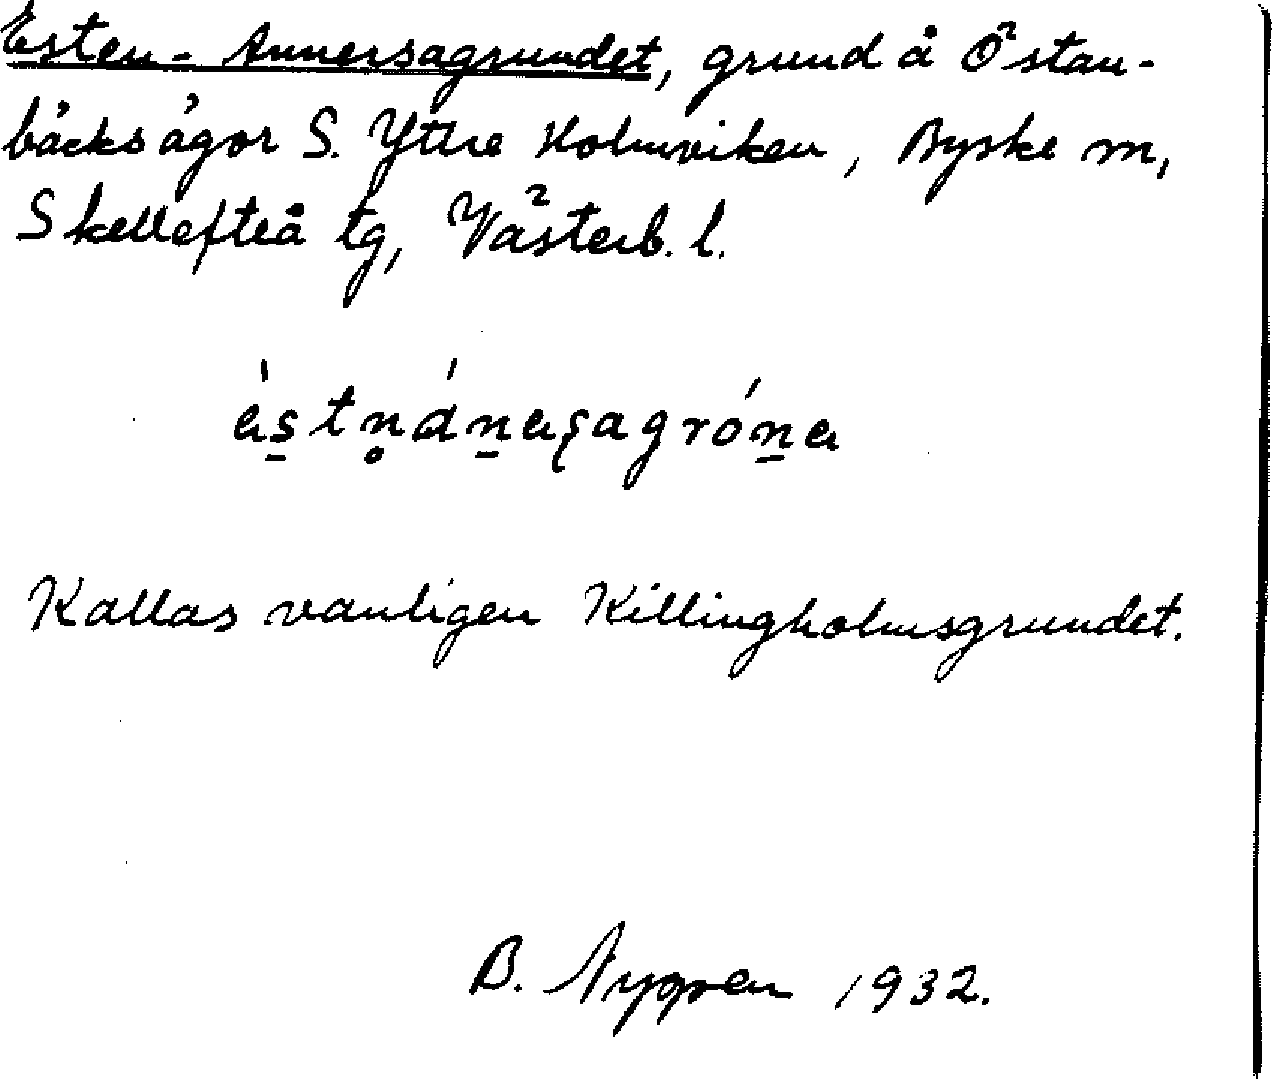 Esten-Annersagrundet, grund å Östan-
bäcks ägor S. Yttre Holmviken, Byske m,
Skellefteå tg, Västerb. l.
Kallas vanligen Killingholmsgrundet.
B. Nygren 1932.